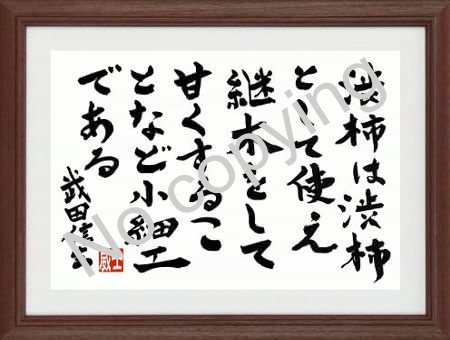 渋柿は渋柿
として使え
継木をして
甘くするこ
となど小細工
である
武田信玄
No copying